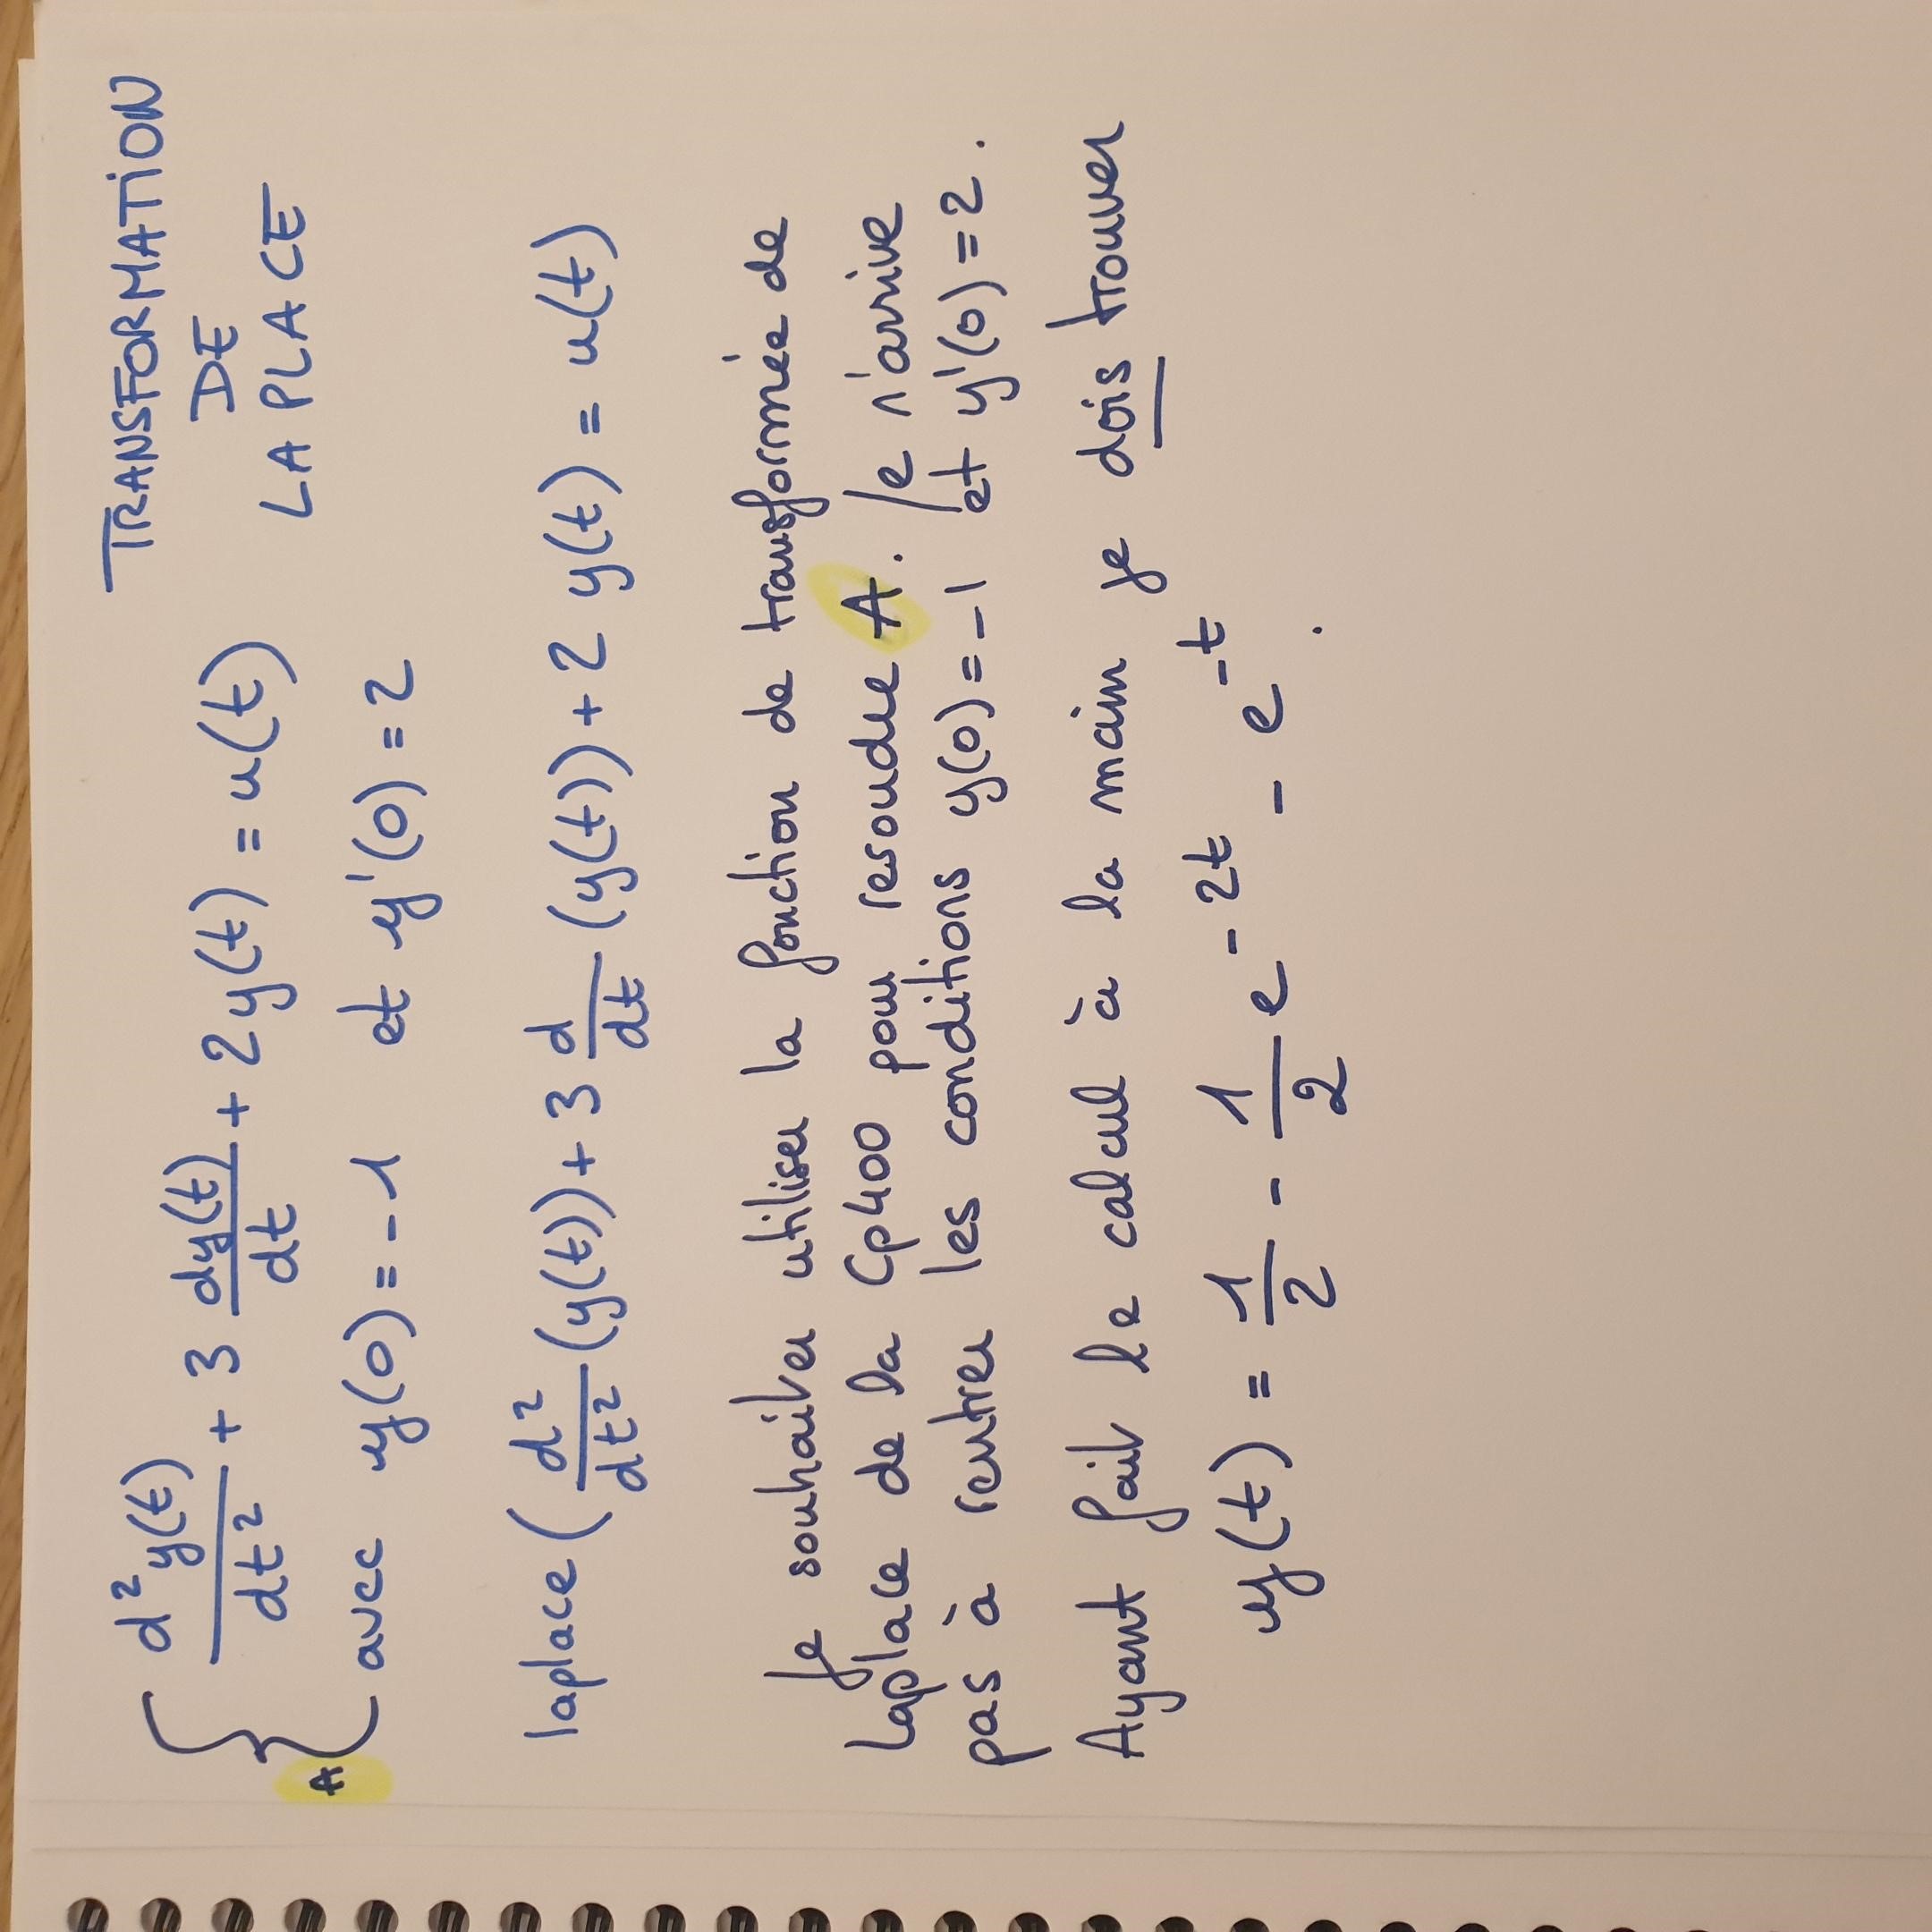 TRANSFORMATION
DE
LAPLACE
A { d²y(t)/dt² + 3 dy(t)/dt + 2y(t) = u(t)
avec y(0) = -1 et y'(0) = 2
laplace (d²/dt² (y(t)) + 3 d/dt (y(t)) + 2 y(t) = u(t)
Je souhaiter utiliser la fonction de transformée de
Laplace de la Cp400 pour resoudre A. Je n'arrive
pas à rentrer les conditions y(0) = -1 et y'(0) = 2.
Ayant fait le calcul à la main je dois trouver
y(t) = 1/2 - 1/2 e^-2t - e^-t.